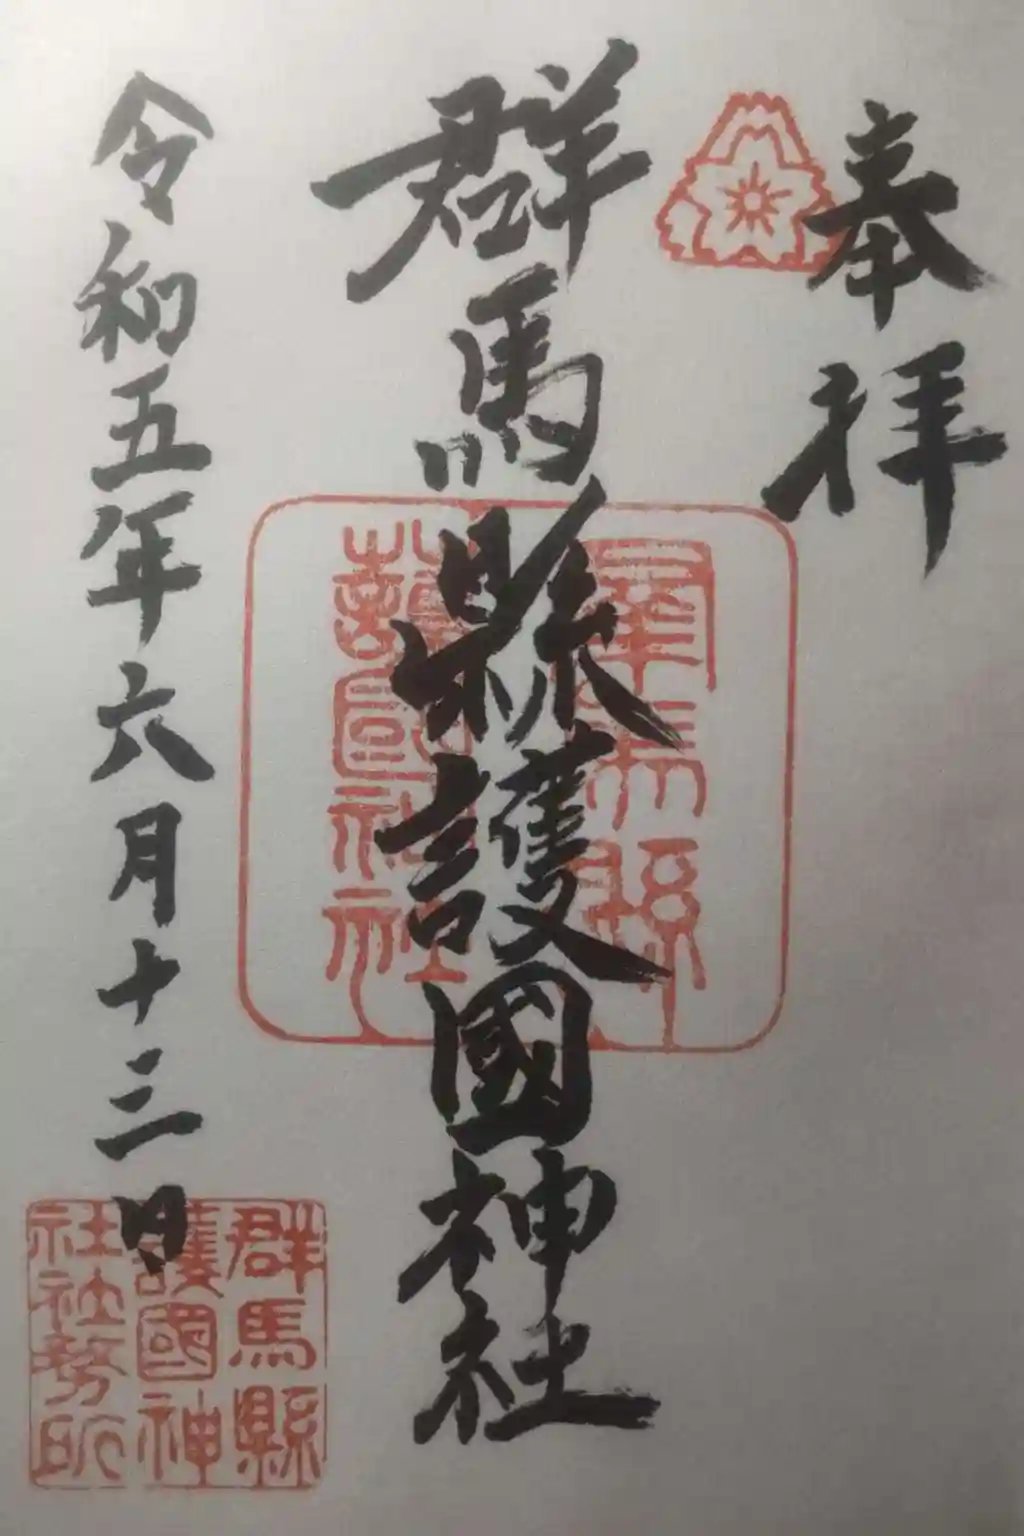 奉拝
群馬縣護國神社
令和五年六月十三日
群馬縣
護國神社
群馬縣
護國神
社社務所